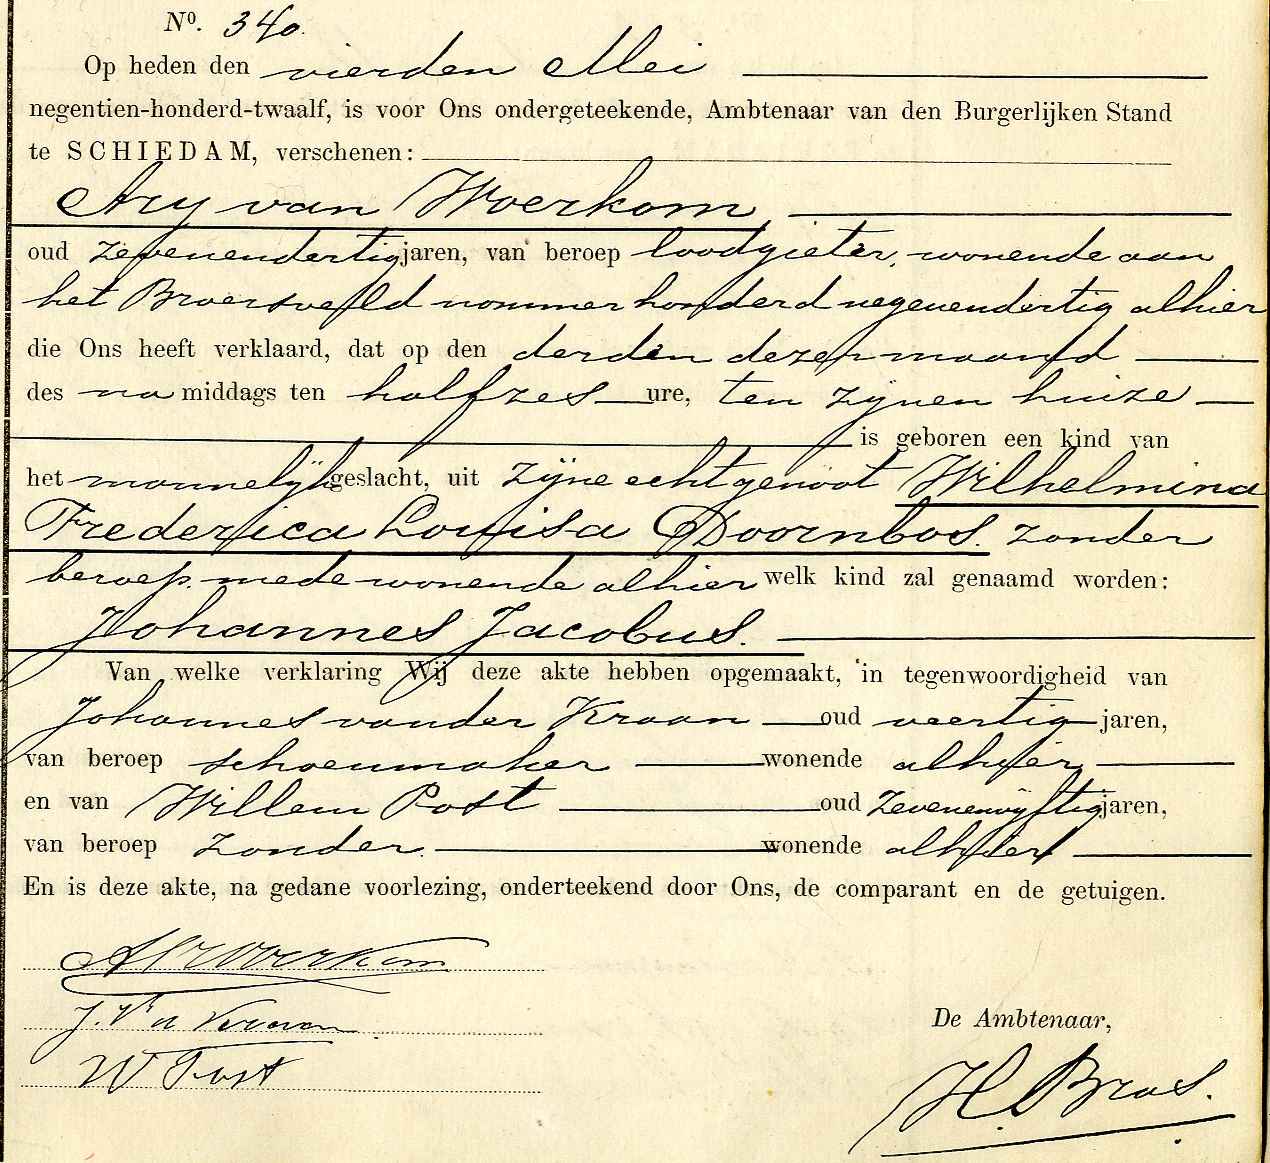 Nº. 340.
Op heden den vierden Mei
negentien-honderd-twaalf, is voor Ons ondergeteekende, Ambtenaar van den Burgerlijken Stand
te SCHIEDAM, verschenen:
Ary van Woerkom,
oud zevenendertig jaren, van beroep loodgieter, wonende aan
het Broersveld nommer honderd negenendertig alhier
die Ons heeft verklaard, dat op den derden dezer maand
des na middags ten half zes ure, ten zijnen huize
is geboren een kind van
het mannelijk geslacht, uit zijne echtgenoot Wilhelmina
Frederica Louisa Doornbos. zonder
beroep. mede wonende alhier welk kind zal genaamd worden:
Johannes Jacobus.
Van welke verklaring Wij deze akte hebben opgemaakt, in tegenwoordigheid van
Johannes van der Kraan oud veertig jaren,
van beroep schoenmaker wonende alhier,
en van Willem Post oud zevenenvijftig jaren,
van beroep zonder. wonende alhier
En is deze akte, na gedane voorlezing, onderteekend door Ons, de comparant en de getuigen.
A v Woerkom
J. v d Kraan
W Post
De Ambtenaar,
H. Bras.